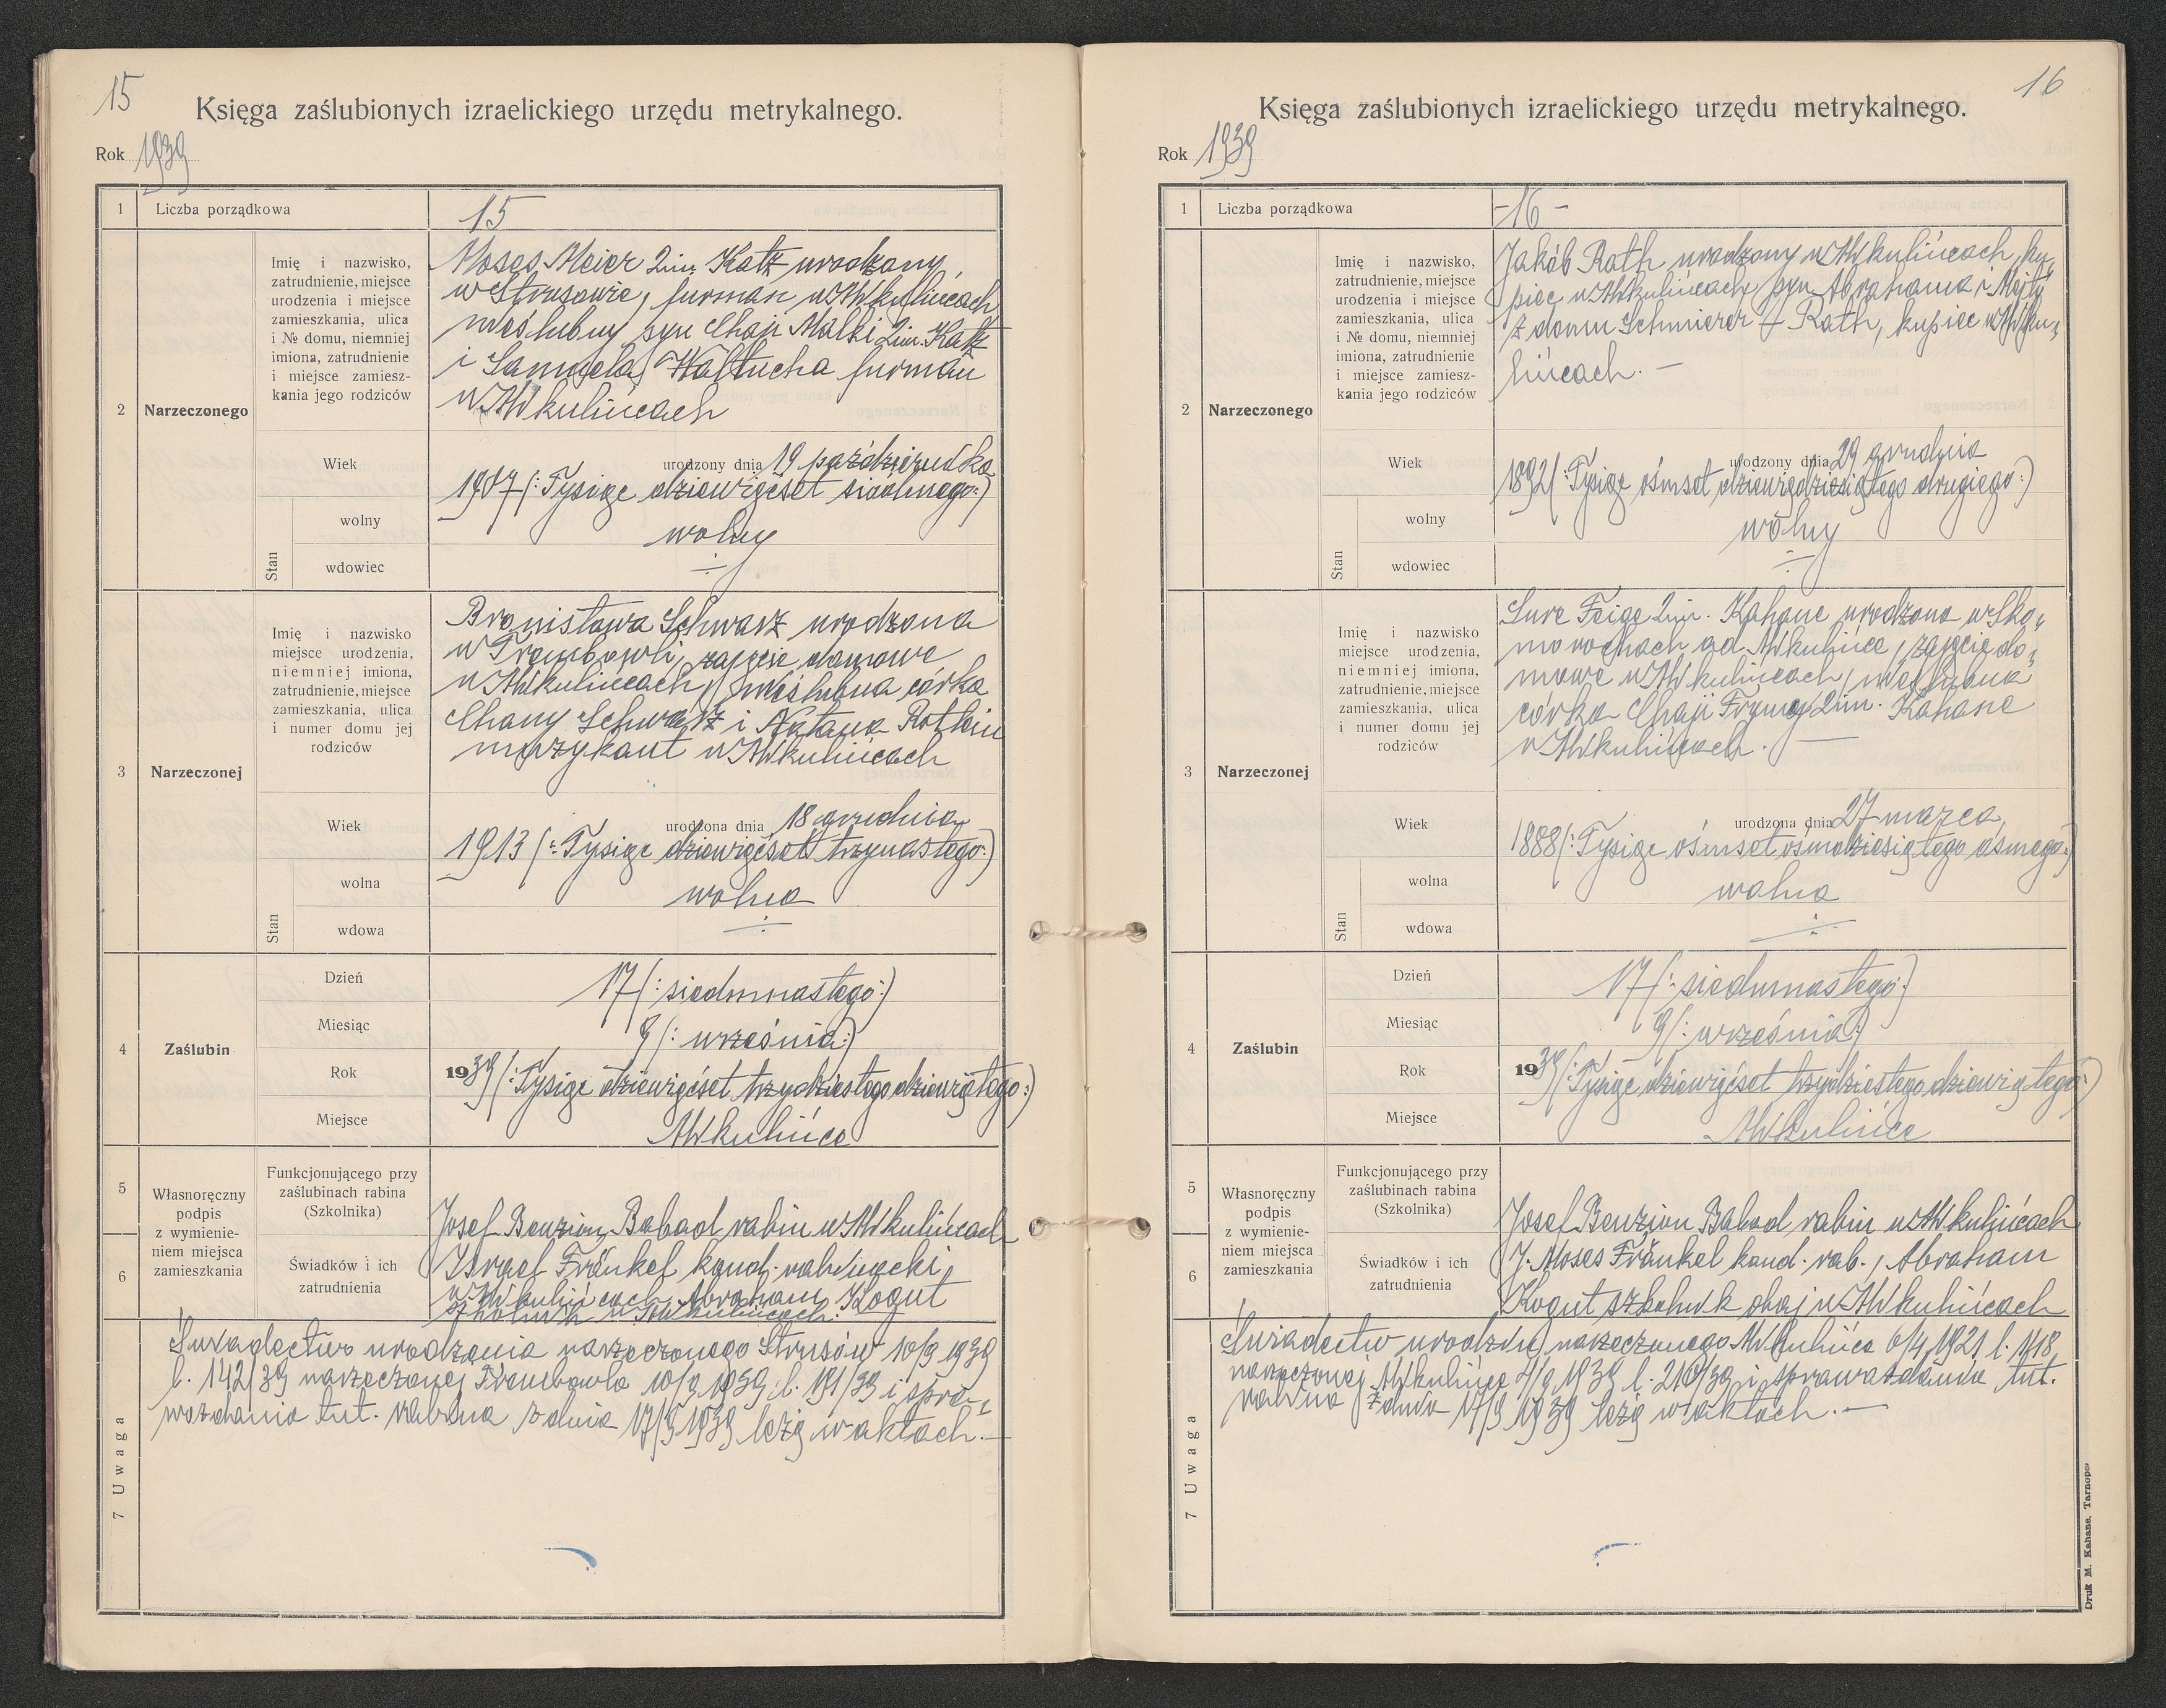 15
Księga zaślubionych izraelickiego urzędu metrykalnego.
Rok 1939
1 Liczba porządkowa 15
2 Narzeczonego
Imię i nazwisko,
zatrudnienie, miejsce
urodzenia i miejsce
zamieszkania, ulica
i № domu, niemniej
imiona, zatrudnienie
i miejsce zamiesz-
kania jego rodziców
Moses Meier 2im. Katz urodzony
w Strusowie, furman w Mikulińcach
nieślubny syn Chaji Malki 2im. Katz
i Samuela Walltucha furman
w Mikulińcach
Wiek urodzony dnia 19 października
1907 (: Tysiąc dziewięćset siódmego :)
Stan
wolny wolny
wdowiec
3 Narzeczonej
Imię i nazwisko
miejsce urodzenia,
niemniej imiona,
zatrudnienie, miejsce
zamieszkania, ulica
i numer domu jej
rodziców
Bronisława Schwarz urodzona
w Trembowli, zajęcie domowe
w Mikulińcach, nieślubna córka
Chany Schwarz i Natana
muzykant w Mikulińcach
Wiek urodzona dnia 18 grudnia
1913 (: Tysiąc dziewięćset trzynastego :)
Stan
wolna wolna
wdowa
4 Zaślubin
Dzień 17 (: siedmnastego :)
Miesiąc 9 (: września :)
Rok 1939 (: Tysiąc dziewięćset trzydziestego dziewiątego :)
Miejsce Mikulińce
5
6
Własnoręczny
podpis
z wymienie-
niem miejsca
zamieszkania
Funkcjonującego przy
zaślubinach rabina
(Szkolnika)
Josef Benzion Babad rabin w Mikulińcach
Świadków i ich
zatrudnienia
Israel Fränkel kand. rabinacki
w Mikulińcach, Abraham Kogut
szkolnik w Mikulińcach.
7 Uwaga
Świadectwo urodzenia narzeczonego Strusów 10/9 1939
l. 142/39 narzeczonej Trembowla 10/9 1939 l. 191/39 i spra-
wozdania tut. rabina z dnia 17/9 1939 leżą w aktach.—
16
Księga zaślubionych izraelickiego urzędu metrykalnego.
Rok 1939
1 Liczba porządkowa -16-
2 Narzeczonego
Imię i nazwisko,
zatrudnienie, miejsce
urodzenia i miejsce
zamieszkania, ulica
i № domu, niemniej
imiona, zatrudnienie
i miejsce zamiesz-
kania jego rodziców
Jakób Rath urodzony w Mikulińcach, ku-
piec w Mikulińcach, syn Abrahama i Mejty
z domu Schmierer + Rath, kupiec w Miku-
lińcach. —
Wiek urodzony dnia 29 grudnia
1892 (: Tysiąc ośmset dziewięćdziesiątego drugiego :)
Stan
wolny wolny
wdowiec
3 Narzeczonej
Imię i nazwisko
miejsce urodzenia,
niemniej imiona,
zatrudnienie, miejsce
zamieszkania, ulica
i numer domu jej
rodziców
Sure Feige 2im. Kahane urodzona w Sko-
morochach ad Mikulińce, zajęcie do-
mowe w Mikulińcach, nieślubna
córka Chaji Frymy 2im. Kahane
w Mikulińcach. —
Wiek urodzona dnia 27 marca
1888 (: Tysiąc ośmset ośmdziesiątego ósmego :)
Stan
wolna wolna
wdowa
4 Zaślubin
Dzień 17 (: siedmnastego :)
Miesiąc 9 (: września :)
Rok 1939 (: Tysiąc dziewięćset trzydziestego dziewiątego :)
Miejsce Mikulińce
5
6
Własnoręczny
podpis
z wymienie-
niem miejsca
zamieszkania
Funkcjonującego przy
zaślubinach rabina
(Szkolnika)
Josef Benzion Babad rabin w Mikulińcach
Świadków i ich
zatrudnienia
J. Moses Fränkel kand. rab., Abraham
Kogut szkolnik obaj w Mikulińcach
7 Uwaga
Świadectwo urodzin narzeczonego Mikulińce 6/4 1921 l. 1418,
narzeczonej Mikulińce 4/9 1939 l. 210/39 i sprawozdania tut.
rabina z dnia 17/9 1939 leżą w aktach.—
Druk M. Kahane, Tarnopol